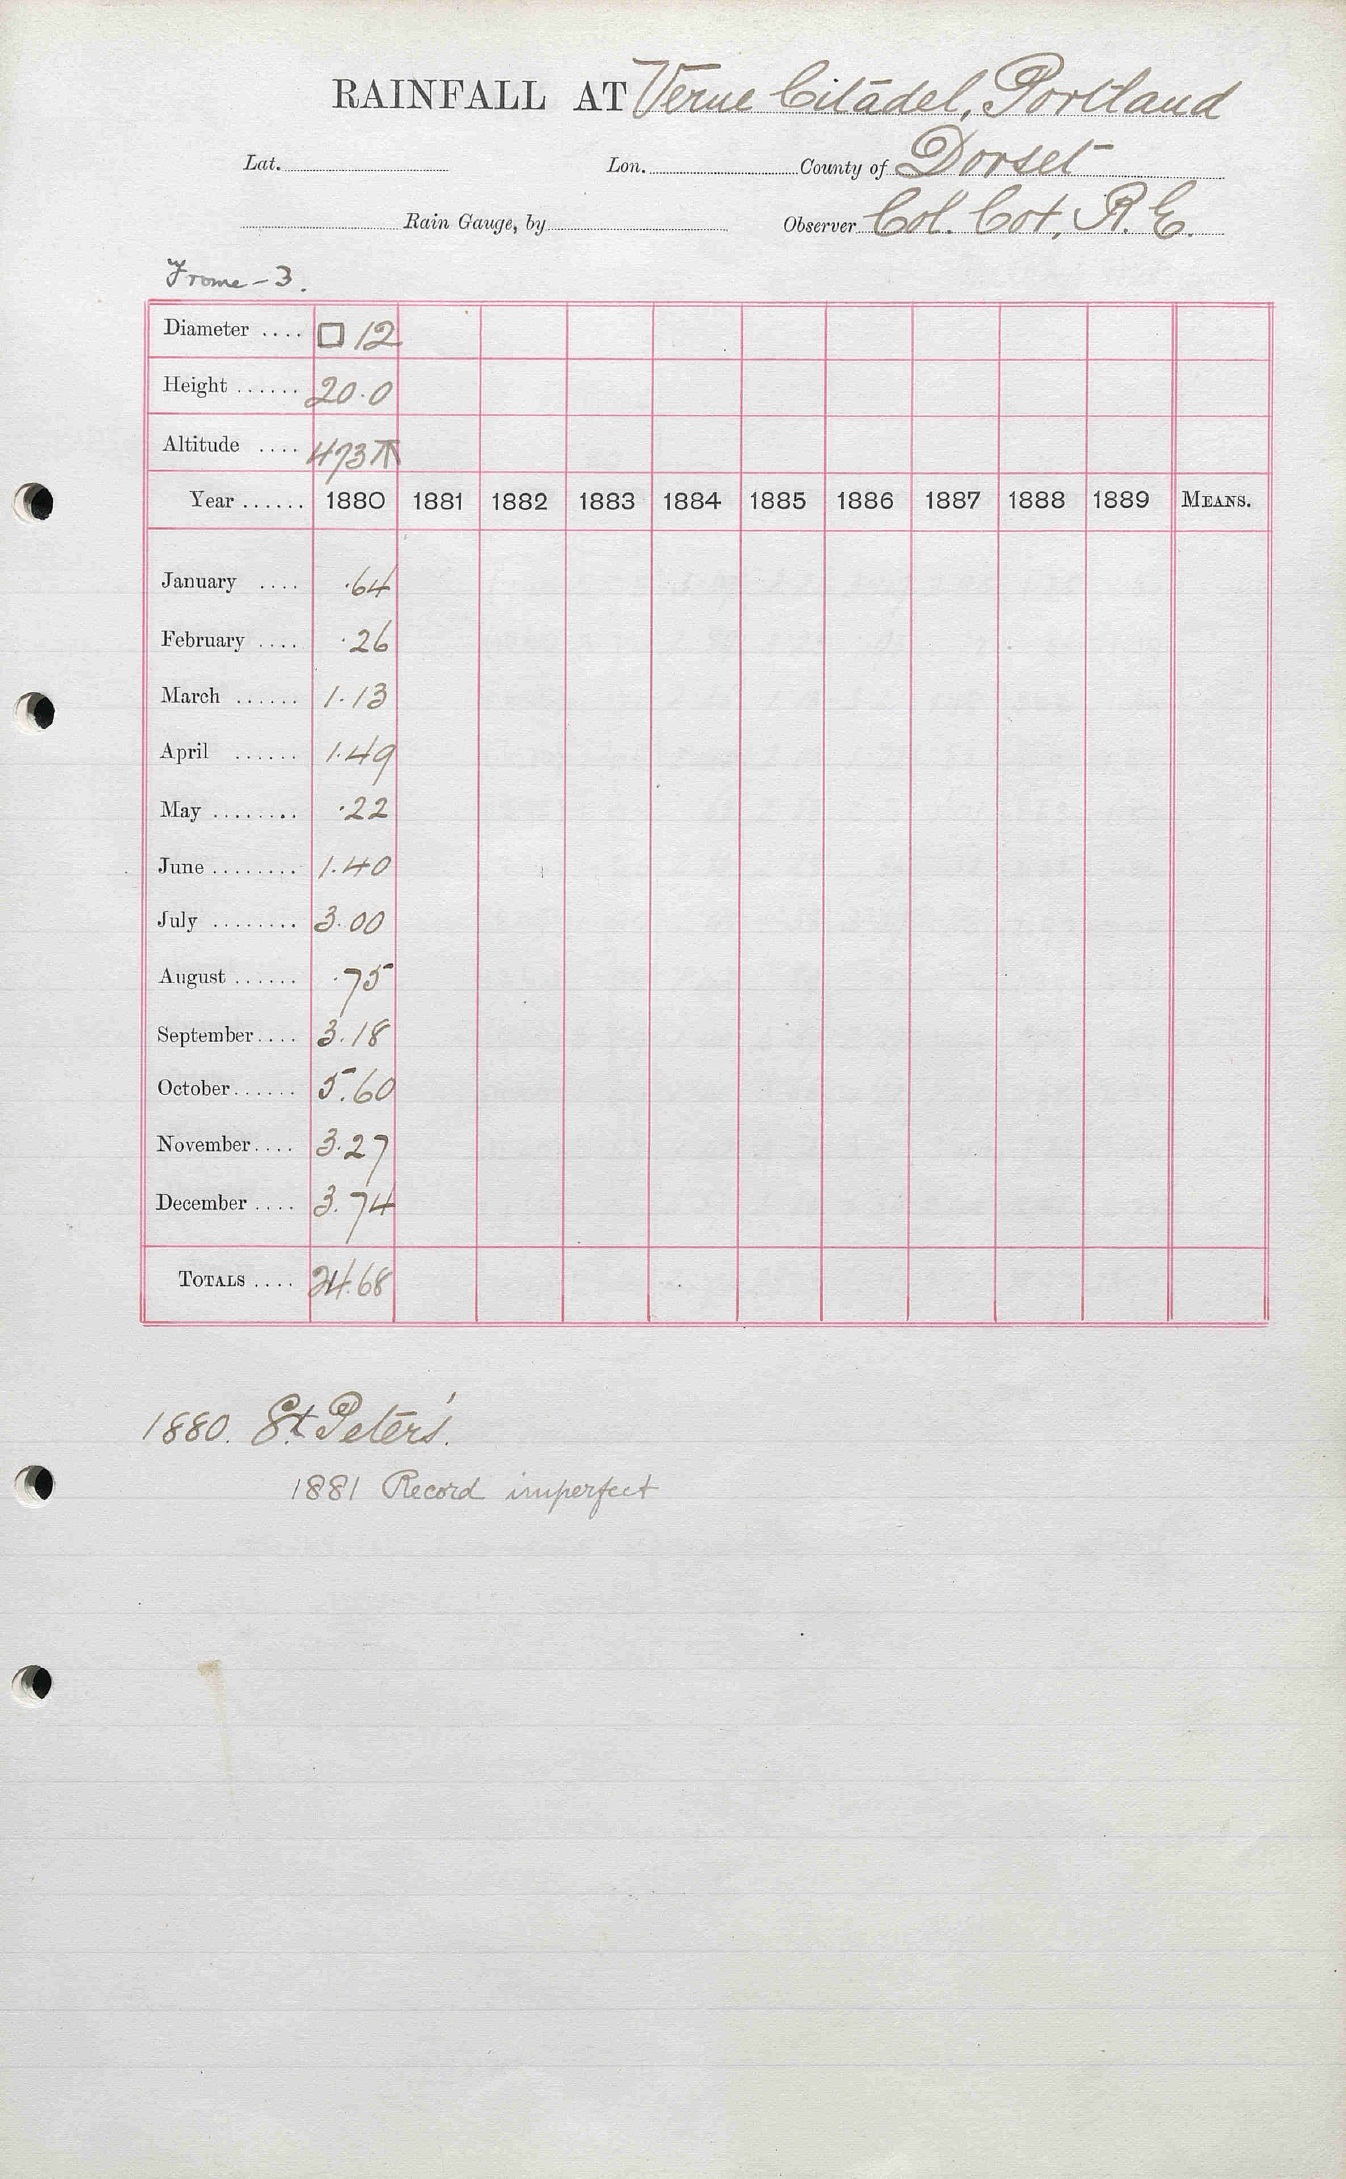 RAINFALL AT Verne Citadel, Portland
Lat. Lon. County of Dorset
Rain Gauge, by Observer Col. Cot, R.E.
Frome - 3.
Diameter .... □ 12
Height ...... 20.0
Altitude .... 473
Year ...... 1880 1881 1882 1883 1884 1885 1886 1887 1888 1889 MEANS.
January .... .64
February .... .26
March ...... 1.13
April ...... 1.49
May ........ .22
June ........ 1.40
July ........ 3.00
August ...... .75
September .... 3.18
October ...... 5.60
November .... 3.27
December .... 3.74
TOTALS .... 24.68
1880. St. Peter's.
1881 Record imperfect